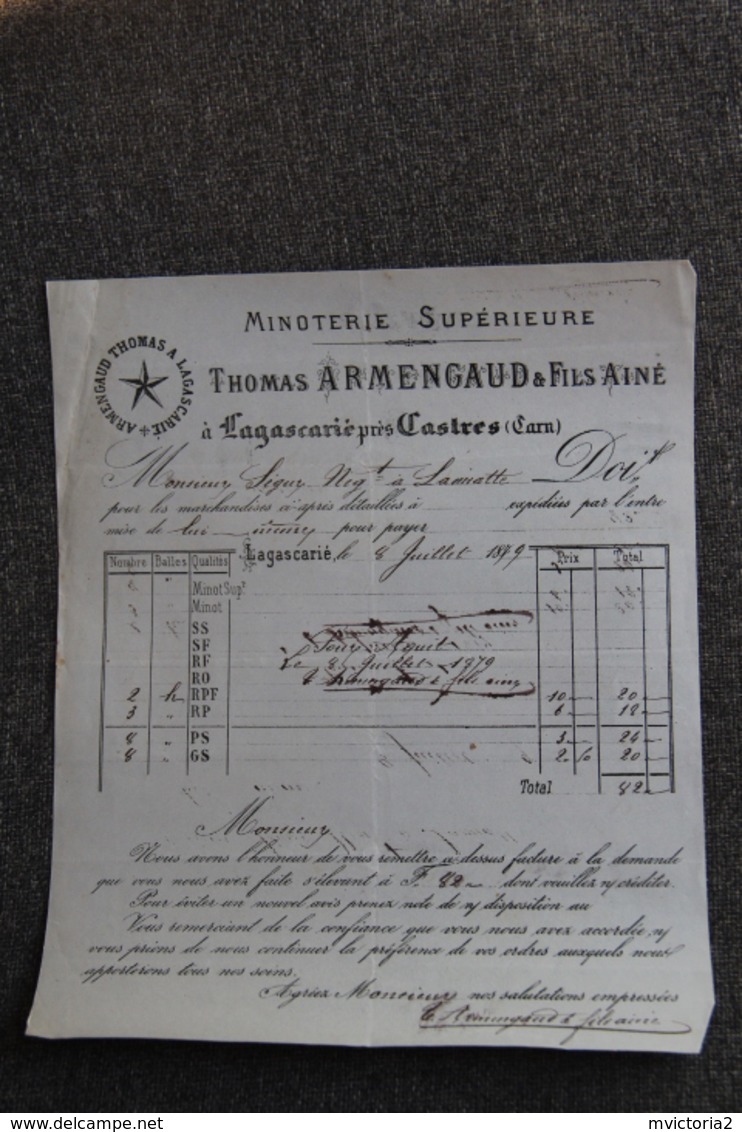 MINOTERIE SUPÉRIEURE
ARMENGAUD THOMAS A LAGASCARIÉ
THOMAS ARMENGAUD & FILS AINÉ
à Lagascarié près Castres (Tarn)
Monsieur Séguy Negt à Lamiatte Doit
pour les marchandises ci après détaillées à expédiées par l'entre
mise de lui même pour payer
Lagascarié, le 8 Juillet 1879
Nombre Balles Qualités Prix Total
Minot Supr
Minot
SS
SF Pour Acquit
RF Le 8 Juillet 1879
RO T Armengaud & fils ainé
2 h RPF 10 20
3 " RP 6 18
8 " PS 3 24
8 " GS 2 50 20
Total 82
Monsieur
Nous avons l'honneur de vous remettre ci dessus facture à la demande
que vous nous avez faite s'élevant à F. 82 dont veuillez n/ créditer.
Pour éviter un nouvel avis prenez note de n/ disposition au
Vous remerciant de la confiance que vous nous avez accordée, n/
vous prions de nous continuer la préférence de vos ordres auxquels nous
apporterons tous nos soins.
Agréez Monsieur nos salutations empressées
T. Armengaud & fils ainé
delcampe.net
mvictoria2